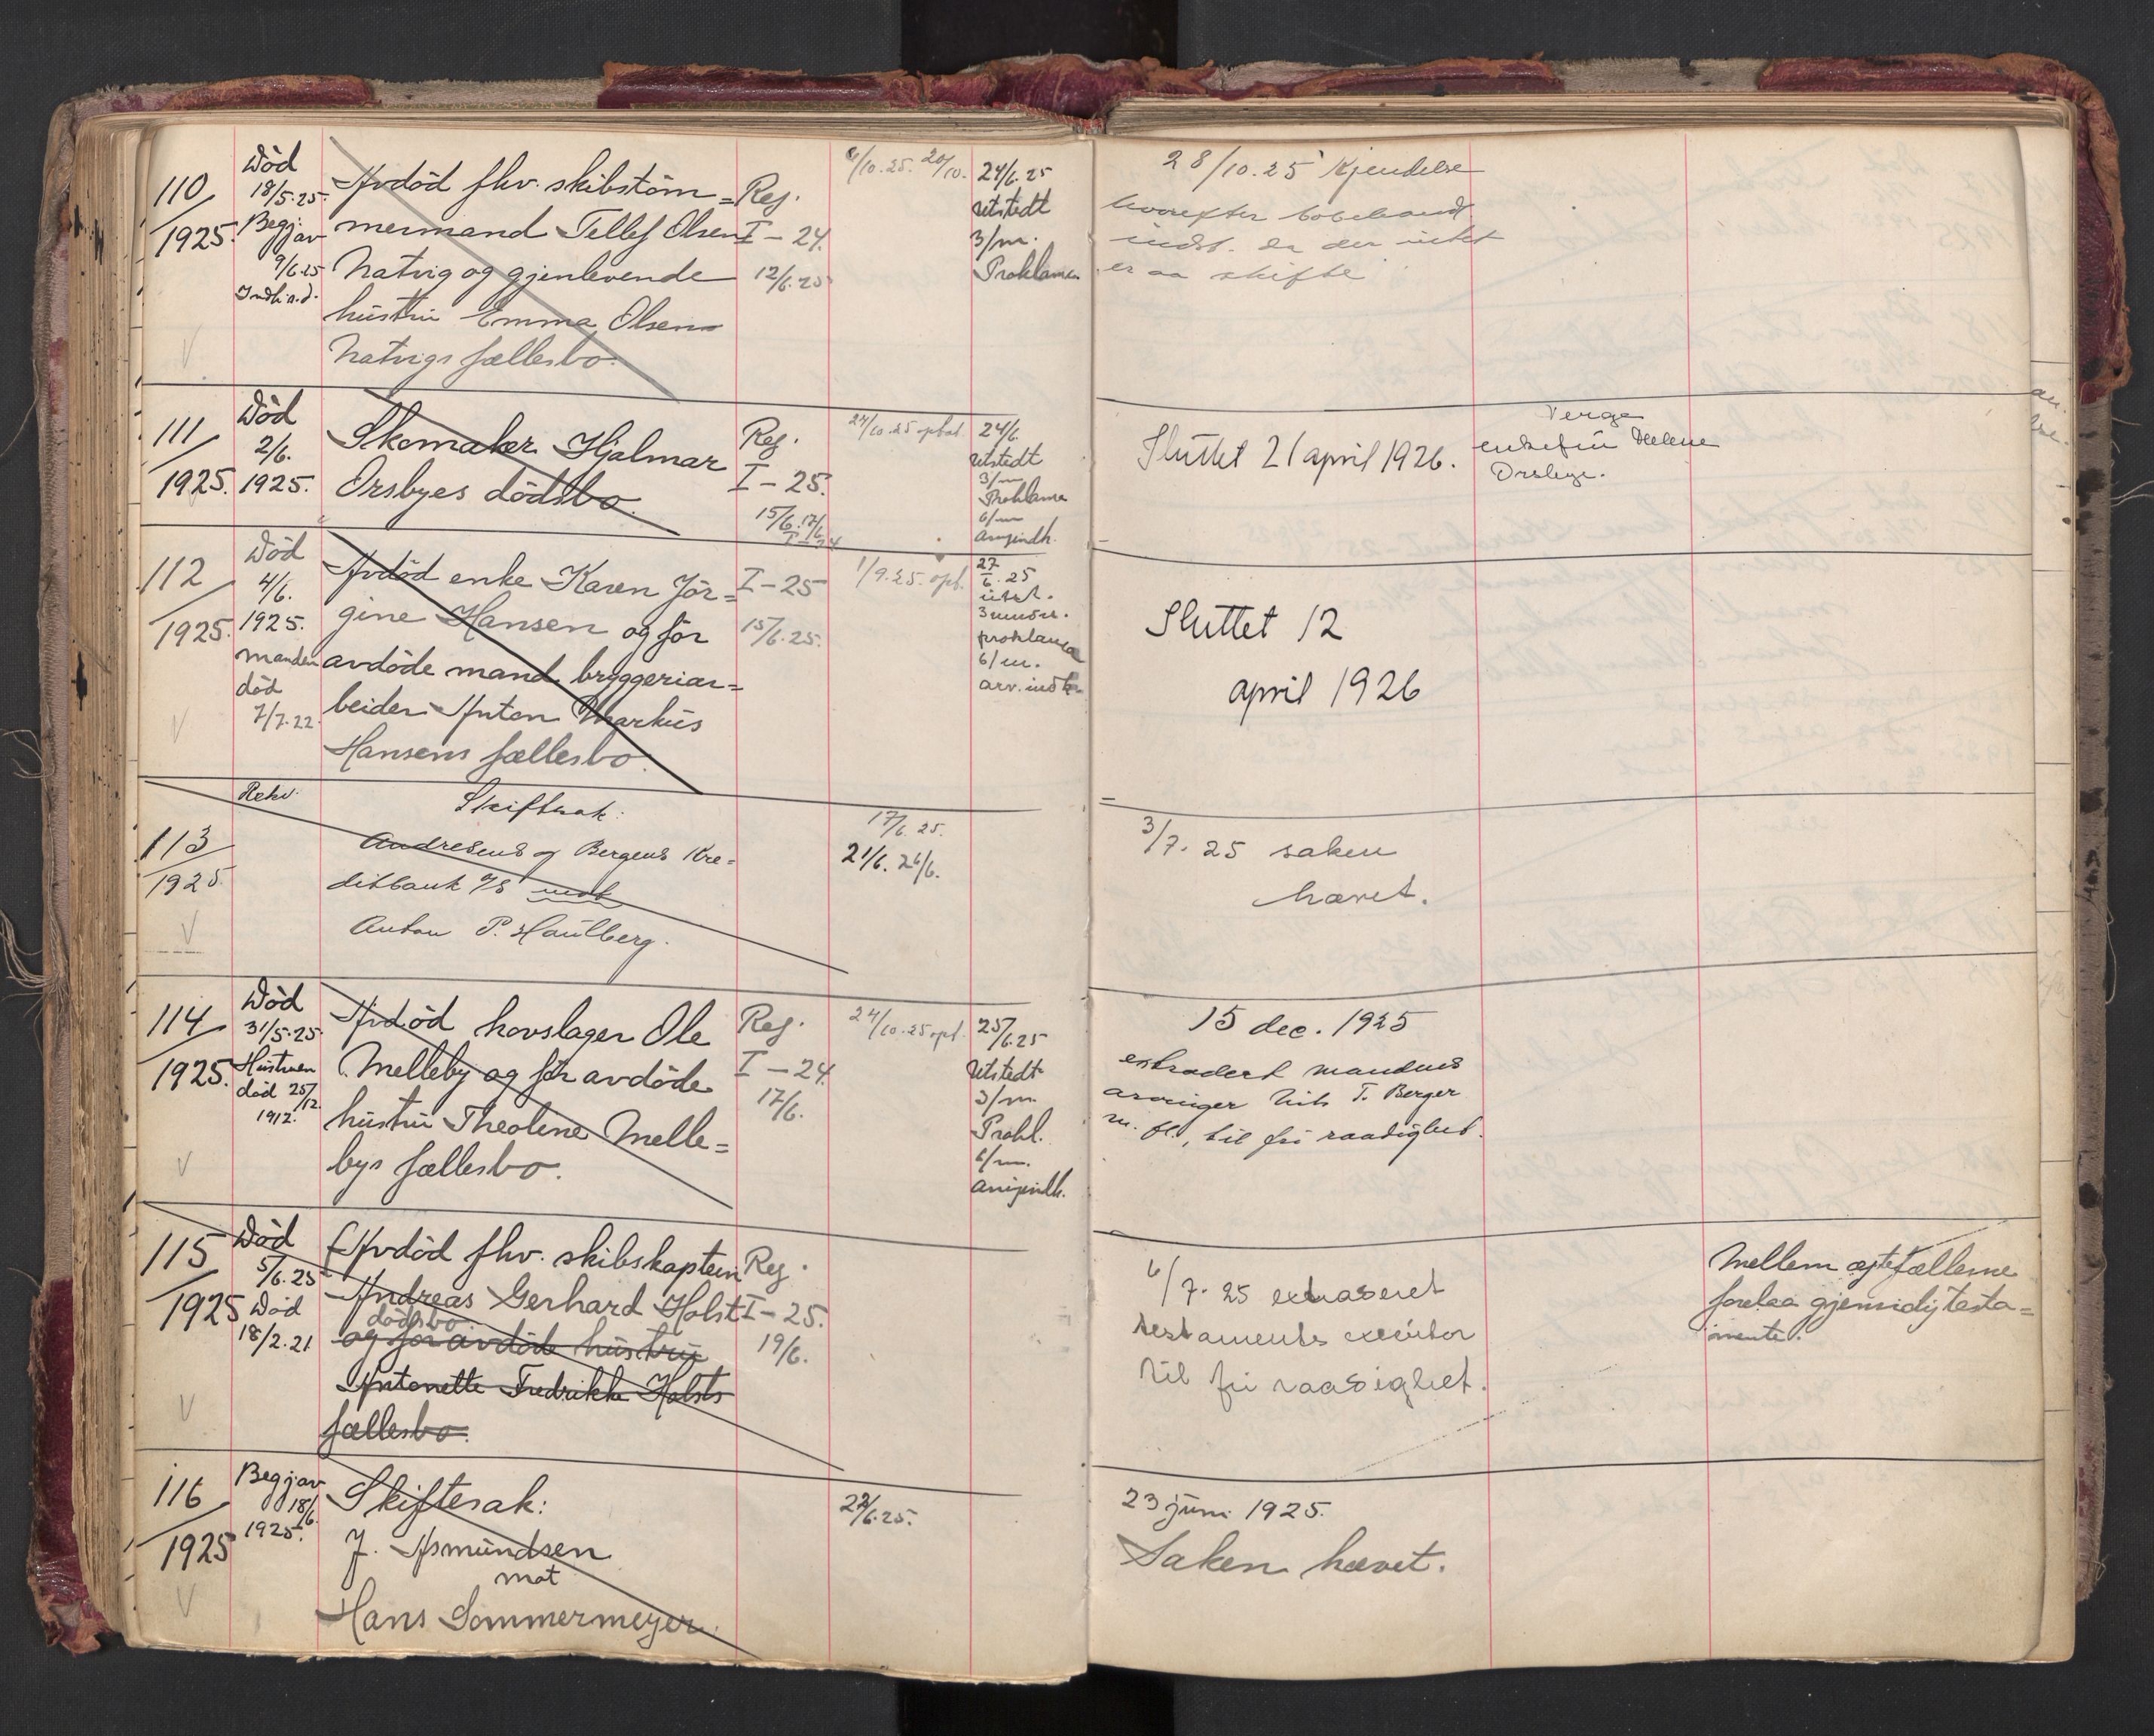 110
1925.
Död
18/5.25.
Begjav
9/6.25
Avdöd fhv. skibstöm=
mermand Tellef Olsen
Natvig og gjenlevende
hustru Emma Olsens
Natvigs fællesbo.
Reg.
I-24.
12/6.25
6/10.25. 20/10.
24/6.25
Utstedt
3/m.
Proklama
28/10.25 Kjendelse
hvorefter bobehandl
indst. da der intet
er aa skifte
111
1925.
Död
2/6.
1925.
Skomaker Hjalmar
Orsbyes dödsbo.
Reg.
I-25.
15/6. 17/6
24/10.25 opbet.
24/6.
Utstedt
3/m
Proklama
6/m
Slüttet 21 april 1926.
Verge
enkefru Helene
Orsbye.
112
1925.
Död
4/6.
1925.
manden
död
7/7.22
Avdöd enke Karen Jör=
gine Hansen og för
avdöde mand bryggeriar=
beider Anton Markus
Hansens fællesbo.
I-25
15/6.25.
1/9.25. opb.
27
6.25
utst.
proklama
6/m.
arv. indk.
Slüttet 12
april 1926
113
1925
Rekv.
Skiftesak:
Andresens og Bergens Kre=
ditbank A/S mot
Anton P. Haulberg.
17/6.25.
21/6. 26/6.
3/7.25 saken
hævet.
114
1925.
Död
31/5.25
Hustruen
död 25/12
1912.
Avdöd hovslager Ole
Melleby og för avdöde
hustru Theoline Melle=
bys fællesbo.
Reg.
I-24.
17/6.
24/10.25 opb.
25/6.25
Utstedt
3/m.
Prokl.
6/m.
15 dec. 1925
extradert mandens
arvinger Nils T. Berger
m. fl., til fri raadighet.
115
1925
Död
5/6.25
Död
18/2.21
Avdöd fhv. skibskaptein
Andreas Gerhard Holst
dödsbo
og för avdöde hustru
Antonette Fredrikke Holsts
fællesbo.
Reg.
I-25.
19/6.
6/7.25 extraderet
testaments executor
til fri raadighet.
Mellem ægtefællerne
forelaa gjensidig testa=
mente.
116
1925
Begjav
18/6.
1925.
Skiftesak:
J. Asmundsen
mot
Hans Sommermeyer.
22/6.25.
23 juni 1925.
Saken hævet.